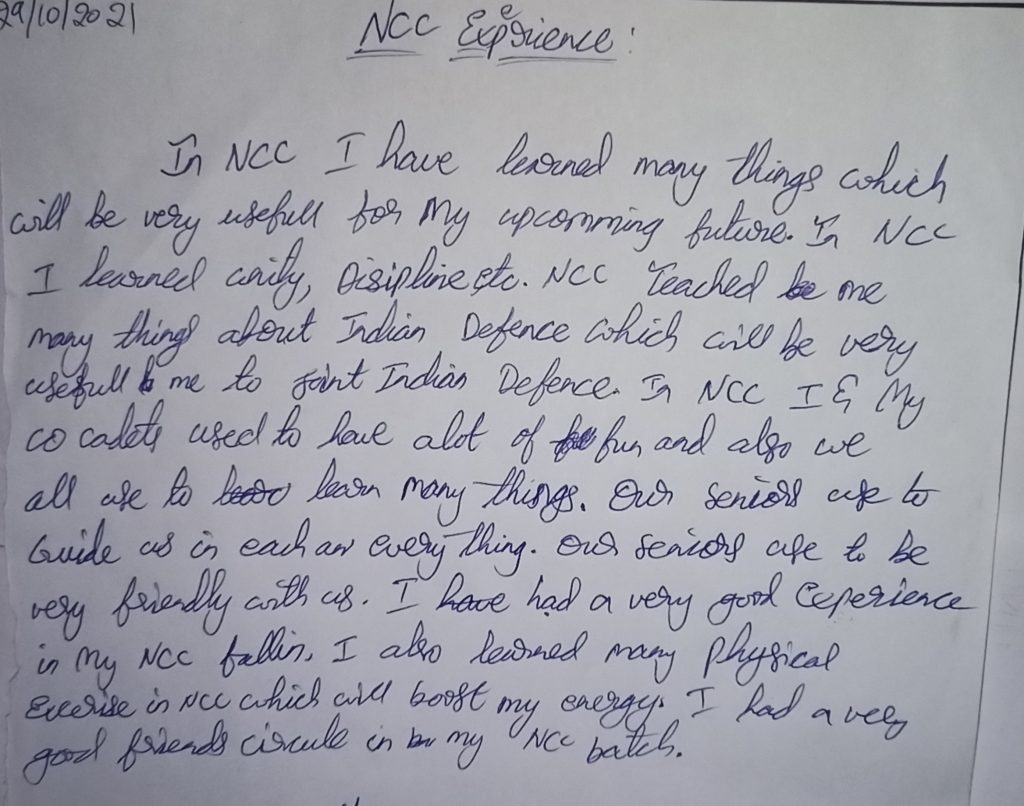 29/10/2021
NCC Experience:
In NCC I have learned many things which
will be very usefull for My upcomming future. In NCC
I learned unity, Disipline etc. NCC Teached me
many things about Indian Defence which will be very
usefull me to joint Indian Defence. In NCC I & My
co cadets used to have alot of fun and also we
all use to learn many things. Our seniors use to
Guide us in each an every thing. Our seniors use to be
very friendly with us. I had a very good Experience
in My NCC fallin. I also learned many physical
Exercise in NCC which will boost my energy. I had a very
good friends circule in my NCC batch.